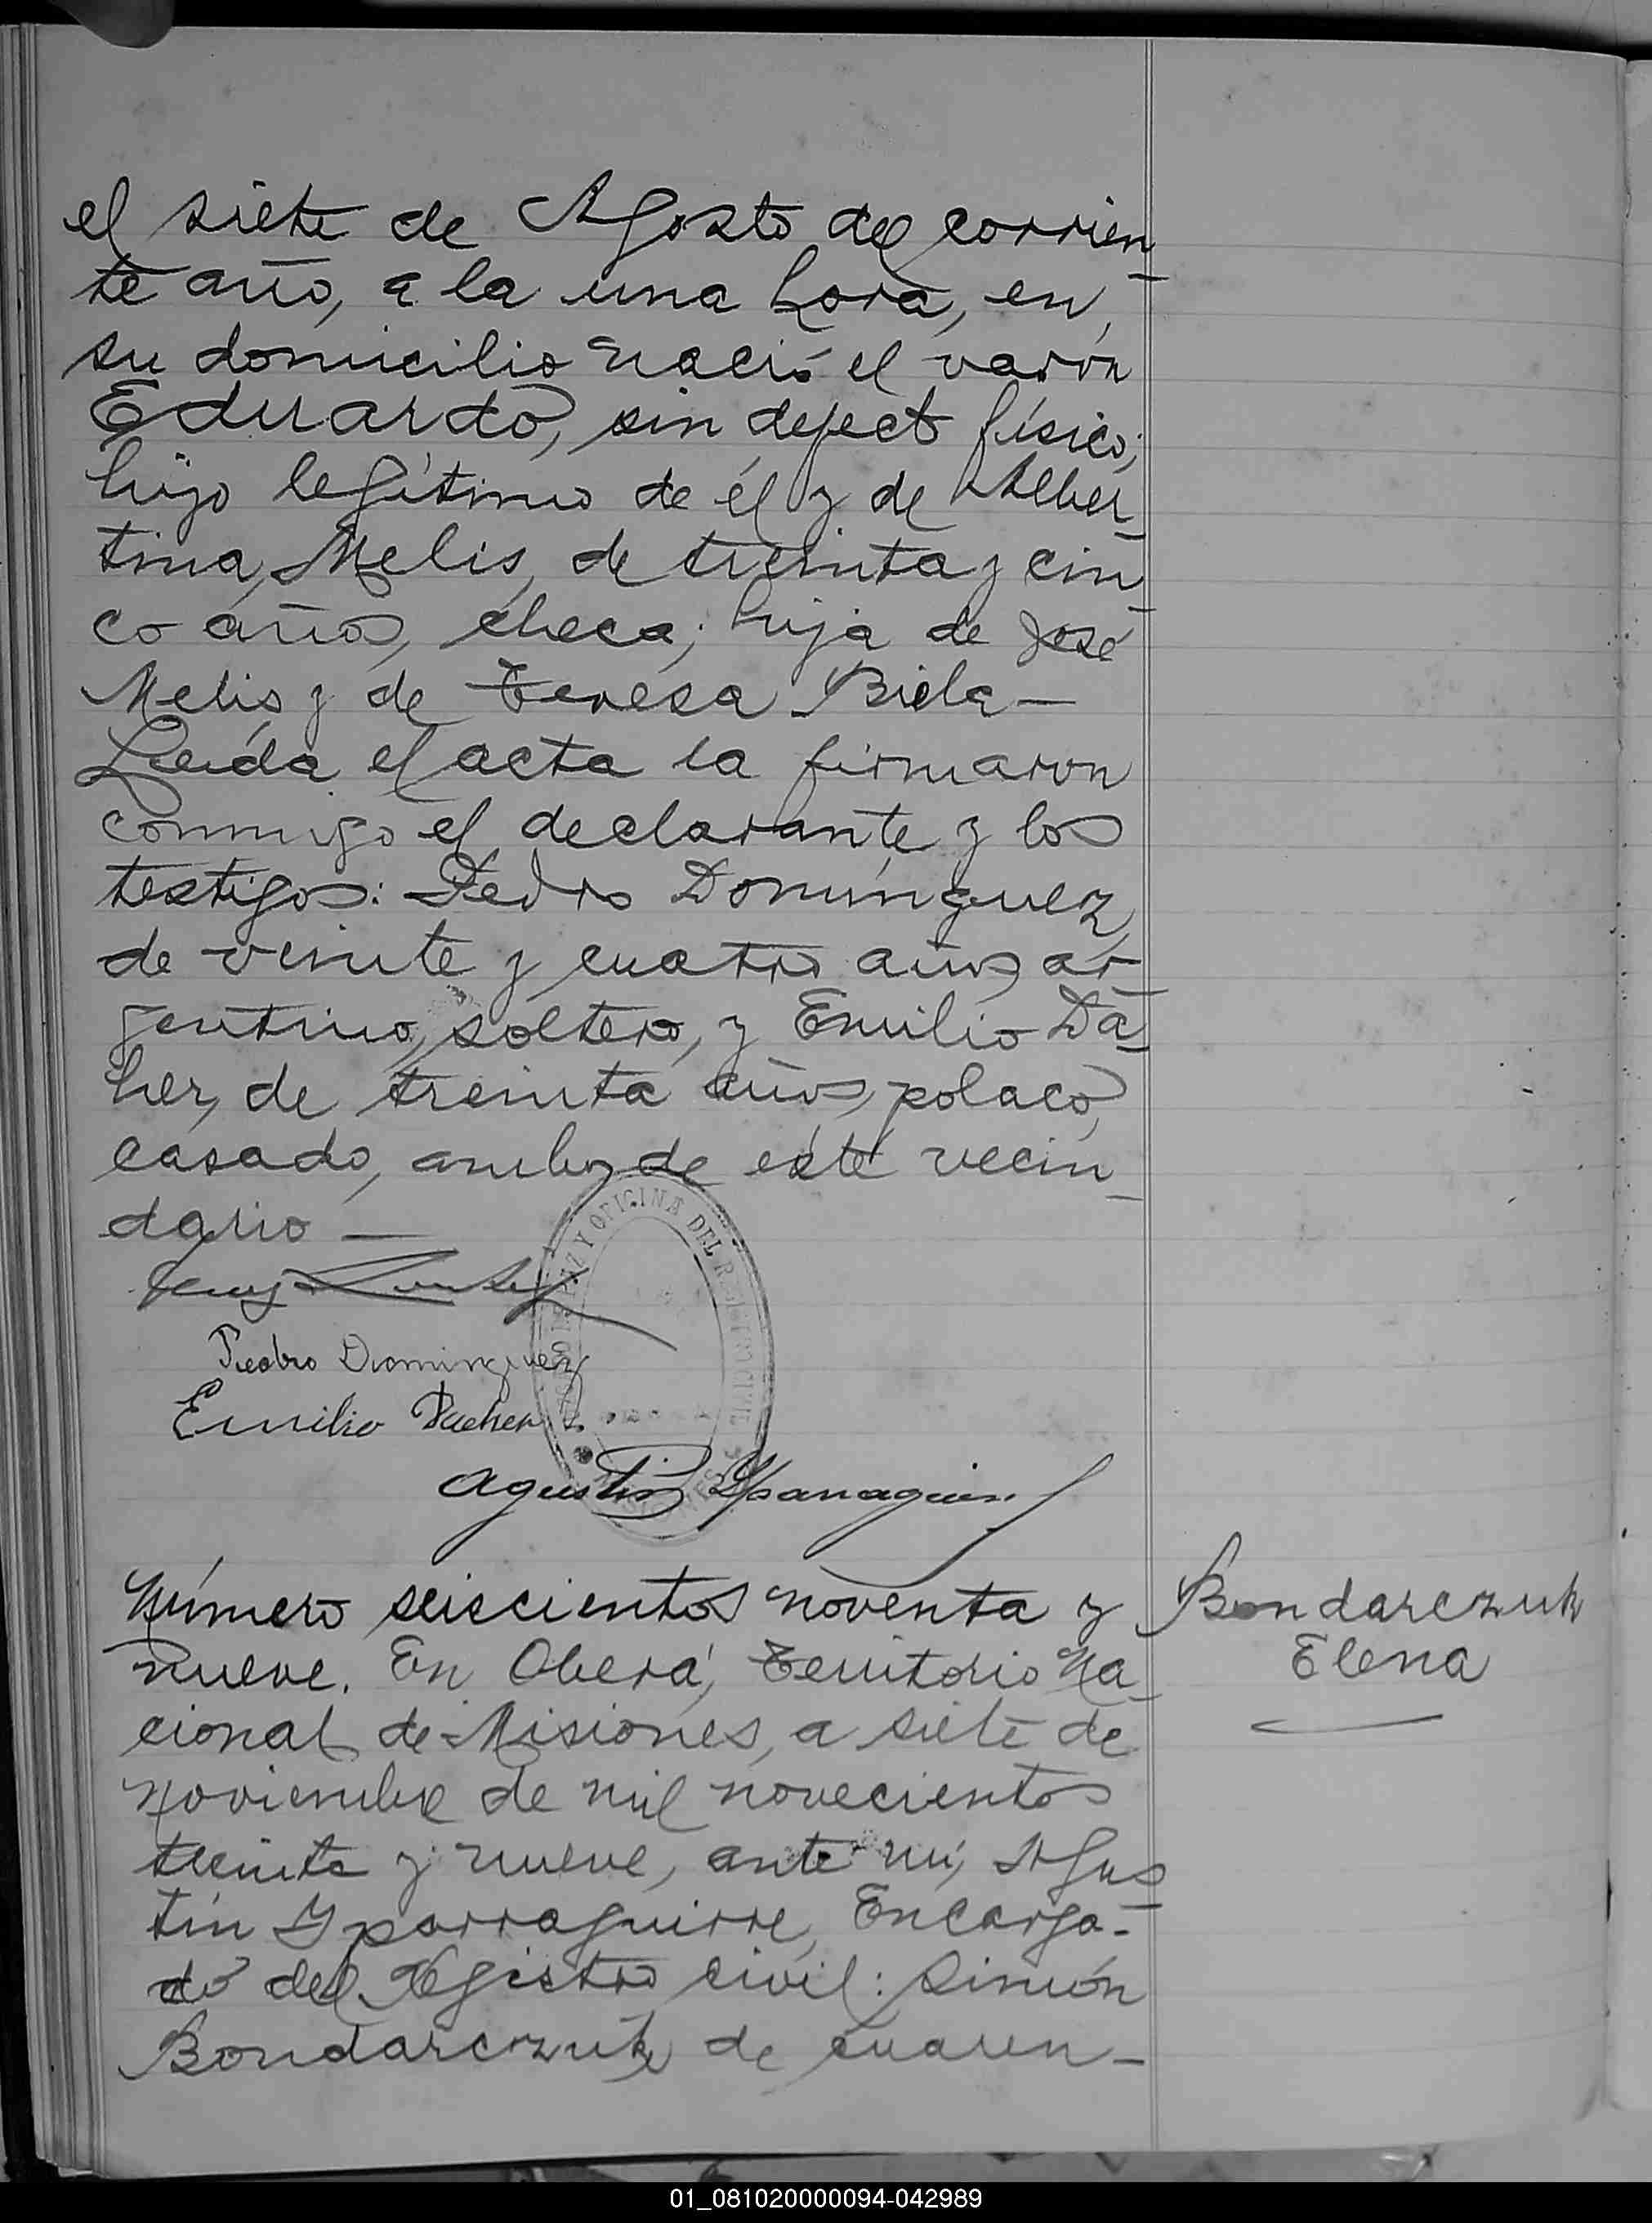 el siete de Agosto del corrien-
te año, a la una hora, en
su domicilio nació el varón
Eduardo, sin defecto físico;
hijo legítimo de él y de Alber-
tina Melis, de treinta y cin-
co años, checa; hija de José
Melis y de Teresa Biela—
Leída el acta la firmaron
conmigo el declarante y los
testigos: Pedro Domínguez
de veinte y cuatro años ar-
gentino, soltero, y Emilio Da-
her, de treinta años, polaco,
casado, ambos de este vecin-
dario —
Y OFICINA DEL
Pedro Dominguez
Emilio Daher
Agustin Yparraguirre
Número seiscientos noventa y
nueve. En Oberá, Territorio Na-
cional de Misiones, a siete de
Noviembre de mil novecientos
treinta y nueve, ante mí, Agus-
tín Yparraguirre, Encarga-
do del Registro Civil: Simón
Bondarczuk de cuaren-
Bondarczuk
Elena
01_081020000094-042989